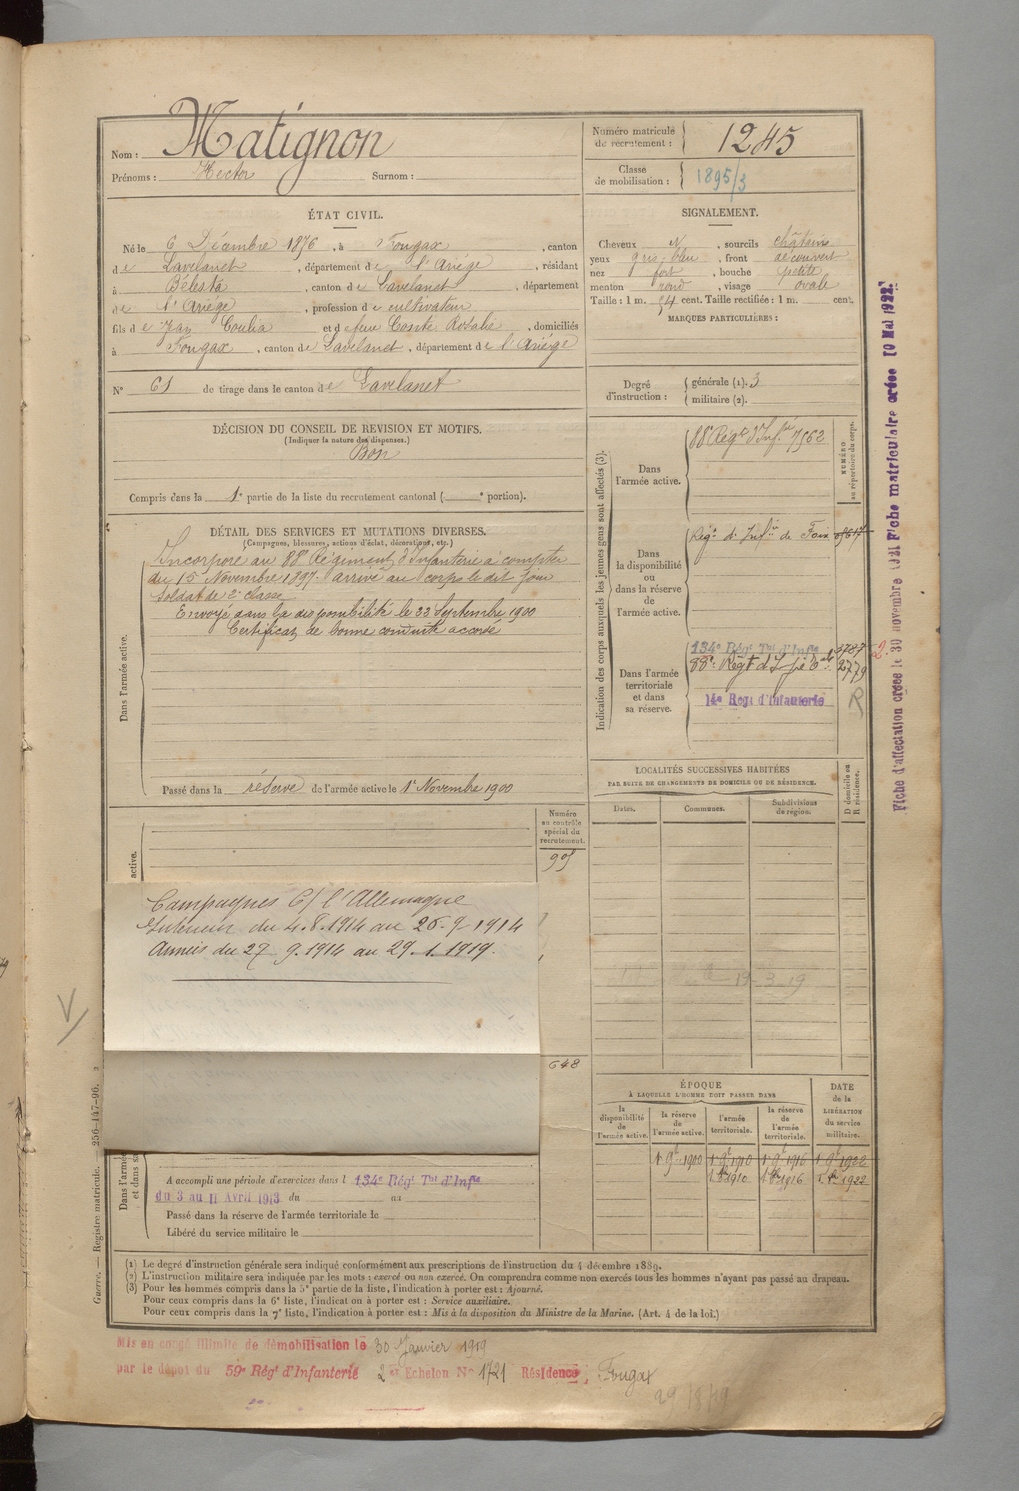 Nom : Matignon
Prénoms : Hector Surnom :
Numéro matricule de recrutement : 1245
Classe de mobilisation : 1895/3
ÉTAT CIVIL.
Né le 6 Décembre 1876, à Fougax, canton
de Lavelanet, département de l'Ariège, résidant
à Bélesta, canton de Lavelanet, département
de l'Ariège, profession de cultivateur
fils de Jean Coulia et de feue Comte Rosalie, domiciliés
à Fougax, canton de Lavelanet, département de l'Ariège
N° 61 de tirage dans le canton de Lavelanet
SIGNALEMENT.
Cheveux N, sourcils châtains
yeux gris-bleu, front découvert
nez fort, bouche petite
menton rond, visage ovale
Taille : 1 m. 54 cent. Taille rectifiée : 1 m. cent.
MARQUES PARTICULIÈRES :
Degré d'instruction : générale (1). 3
militaire (2).
DÉCISION DU CONSEIL DE REVISION ET MOTIFS.
(Indiquer la nature des dispenses.)
Bon
Compris dans la 1e partie de la liste du recrutement cantonal ( e portion).
DÉTAIL DES SERVICES ET MUTATIONS DIVERSES.
(Campagnes, blessures, actions d'éclat, décorations, etc.)
Dans l'armée active.
Incorporé au 88e Régiment d'Infanterie à compter
du 15 Novembre 1897. arrivé au corps le dit jour
Soldat de 2e classe
Envoyé dans la disponibilité le 22 Septembre 1900
Certificat de bonne conduite accordé
Passé dans la réserve de l'armée active le 1er Novembre 1900
Indication des corps auxquels les jeunes gens sont affectés (3).
NUMÉRO au répertoire du corps.
Dans l'armée active.
88e Régt d'Infrie 7562
Dans la disponibilité ou dans la réserve de l'armée active.
Régt d'Infie de Foix
Dans l'armée territoriale et dans sa réserve.
134e Régt Tal d'Infie
14e Régt d'Infanterie R
Fiche d'affectation créée le 30 novembre 1921 Fiche matriculaire créée 10 Mai 1922
LOCALITÉS SUCCESSIVES HABITÉES
PAR SUITE DE CHANGEMENTS DE DOMICILE OU DE RÉSIDENCE.
Dates. Communes. Subdivisions de région. D domicile ou R résidence.
Numéro au contrôle spécial du recrutement.
active.
Campagnes C/ l'Allemagne
Intérieur du 4.8.1914 au 26.9.1914
Armées du 27.9.1914 au 29.1.1919.
648
ÉPOQUE
À LAQUELLE L'HOMME DOIT PASSER DANS
la disponibilité de l'armée active. la réserve de l'armée active. l'armée territoriale. la réserve de l'armée territoriale.
DATE de la LIBÉRATION du service militaire.
1 9bre 1900 1 9bre 1910 1 9bre 1916 1 9bre 1922
A accompli une période d'exercices dans l 134e Régt Tal d'Infie
du 3 au 11 Avril 1913 du au
Passé dans la réserve de l'armée territoriale le
Libéré du service militaire le
(1) Le degré d'instruction générale sera indiqué conformément aux prescriptions de l'instruction du 4 décembre 1889.
(2) L'instruction militaire sera indiquée par les mots : exercé ou non exercé. On comprendra comme non exercés tous les hommes n'ayant pas passé au drapeau.
(3) Pour les hommes compris dans la 5e partie de la liste, l'indication à porter est : Ajourné.
Pour ceux compris dans la 6e liste, l'indication à porter est : Service auxiliaire.
Pour ceux compris dans la 7e liste, l'indication à porter est : Mis à la disposition du Ministre de la Marine. (Art. 4 de la loi.)
Guerre. — Registre matricule. 256-147-96.
Mis en congé illimité de démobilisation le 30 Janvier 1919
par le dépôt du 59e Régt d'Infanterie 2e Echelon N° 1721 Résidence : Fougax